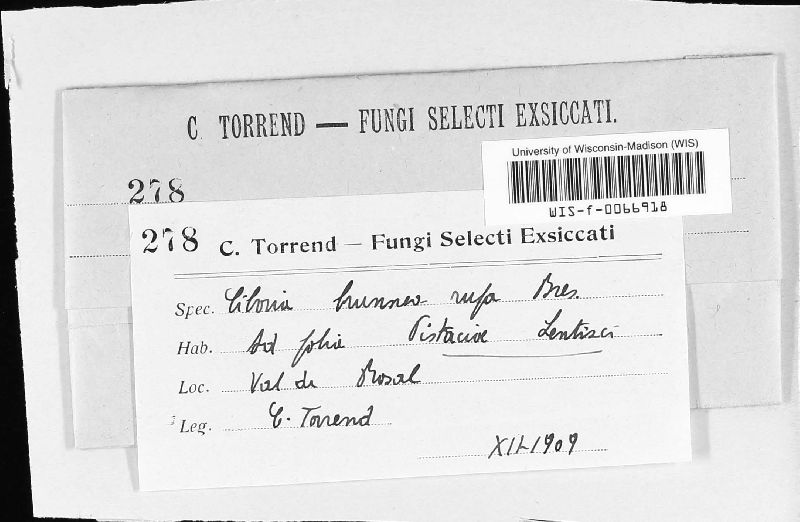 C. TORREND — FUNGI SELECTI EXSICCATI.
University of Wisconsin-Madison (WIS)
WIS-f-0066918
278
278 C. Torrend — Fungi Selecti Exsiccati
Spec. Ciboria brunneo rufa Bres.
Hab. Ad folia Pistaciae Lentisci
Loc. Val de Rosal
Leg. C. Torrend
XII-1909